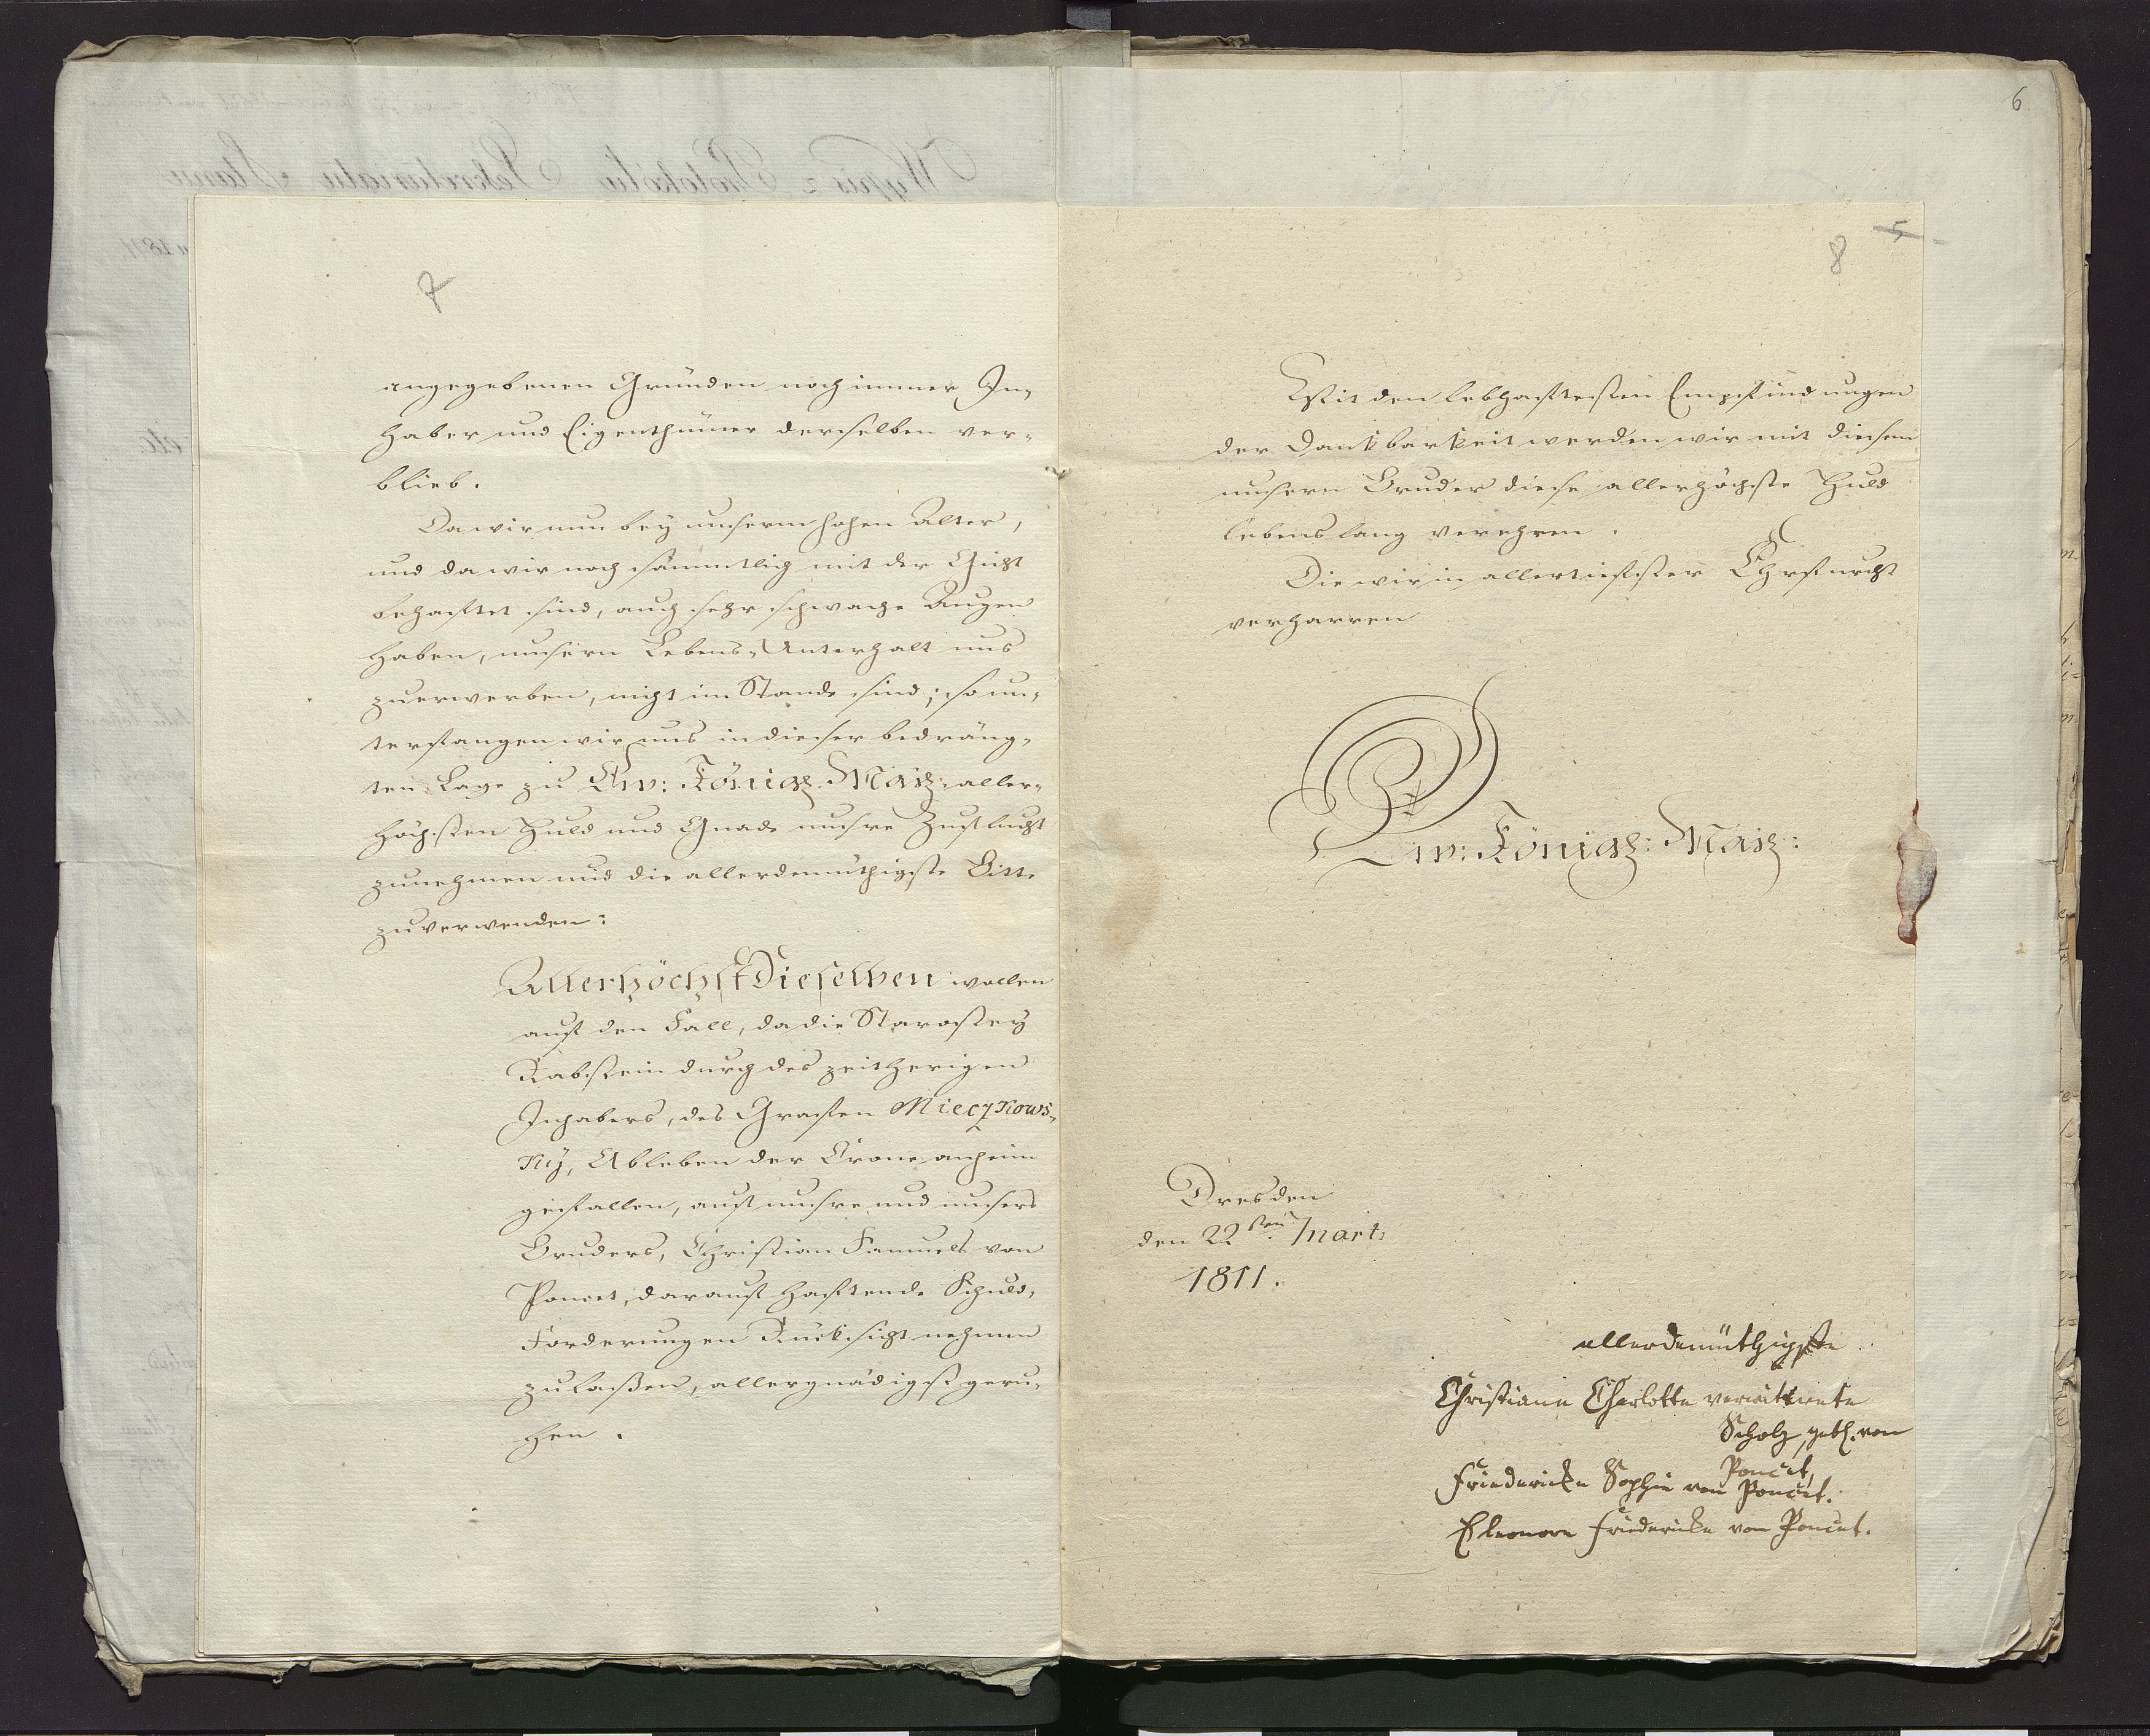 7
angegebenen Gründen noch immer In-
haber und Eigenthümer derselben ver-
blieb.
Da wir nun bey unserm hohen Alter,
und da wir noch sämmtlich mit der Gicht
behafftet sind, auch sehr schwache Augen
haben, unsern Lebens-Unterhalt uns
zuerwerben, nicht im Stande sind; so un-
terfangen wir uns in dieser bedräng-
ten Lage zu Ew: Königl. Maj: aller-
höchsten Huld und Gnade unsre Zuflucht
zunehmen und die allerdemüthigste Bitte
zuverwenden:
Allerhöchst Dieselben wollen
auf den Fall, da die Starostey
Rabstein durch des zeitherigen
Inhabers, des Grafen Mieczkows-
ky, Ableben der Crone anheim
gefallen, auf unsre und unsers
Bruders, Christian Samuels von
Poncet, darauf hafftende Schuld-
Forderungen Rücksicht nehmen
zulaßen, allergnädigst geru-
hen.
6
5
8
Mit den lebhafftesten Empfindungen
der Dankbarkeit werden wir mit diesem
unsern Bruder diese allerhöchste Huld
lebenslang verehren.
Die wir in allertiefster Ehrfurcht
verharren
Ew: Königl: Maj:
Dresden
den 22sten Mart:
1811.
allerdemüthigste
Christiana Charlotte verwittwete
Scholz, geb. von
Poncet,
Friedericke Sophie von Poncet.
Eleonore Friedericke von Poncet.